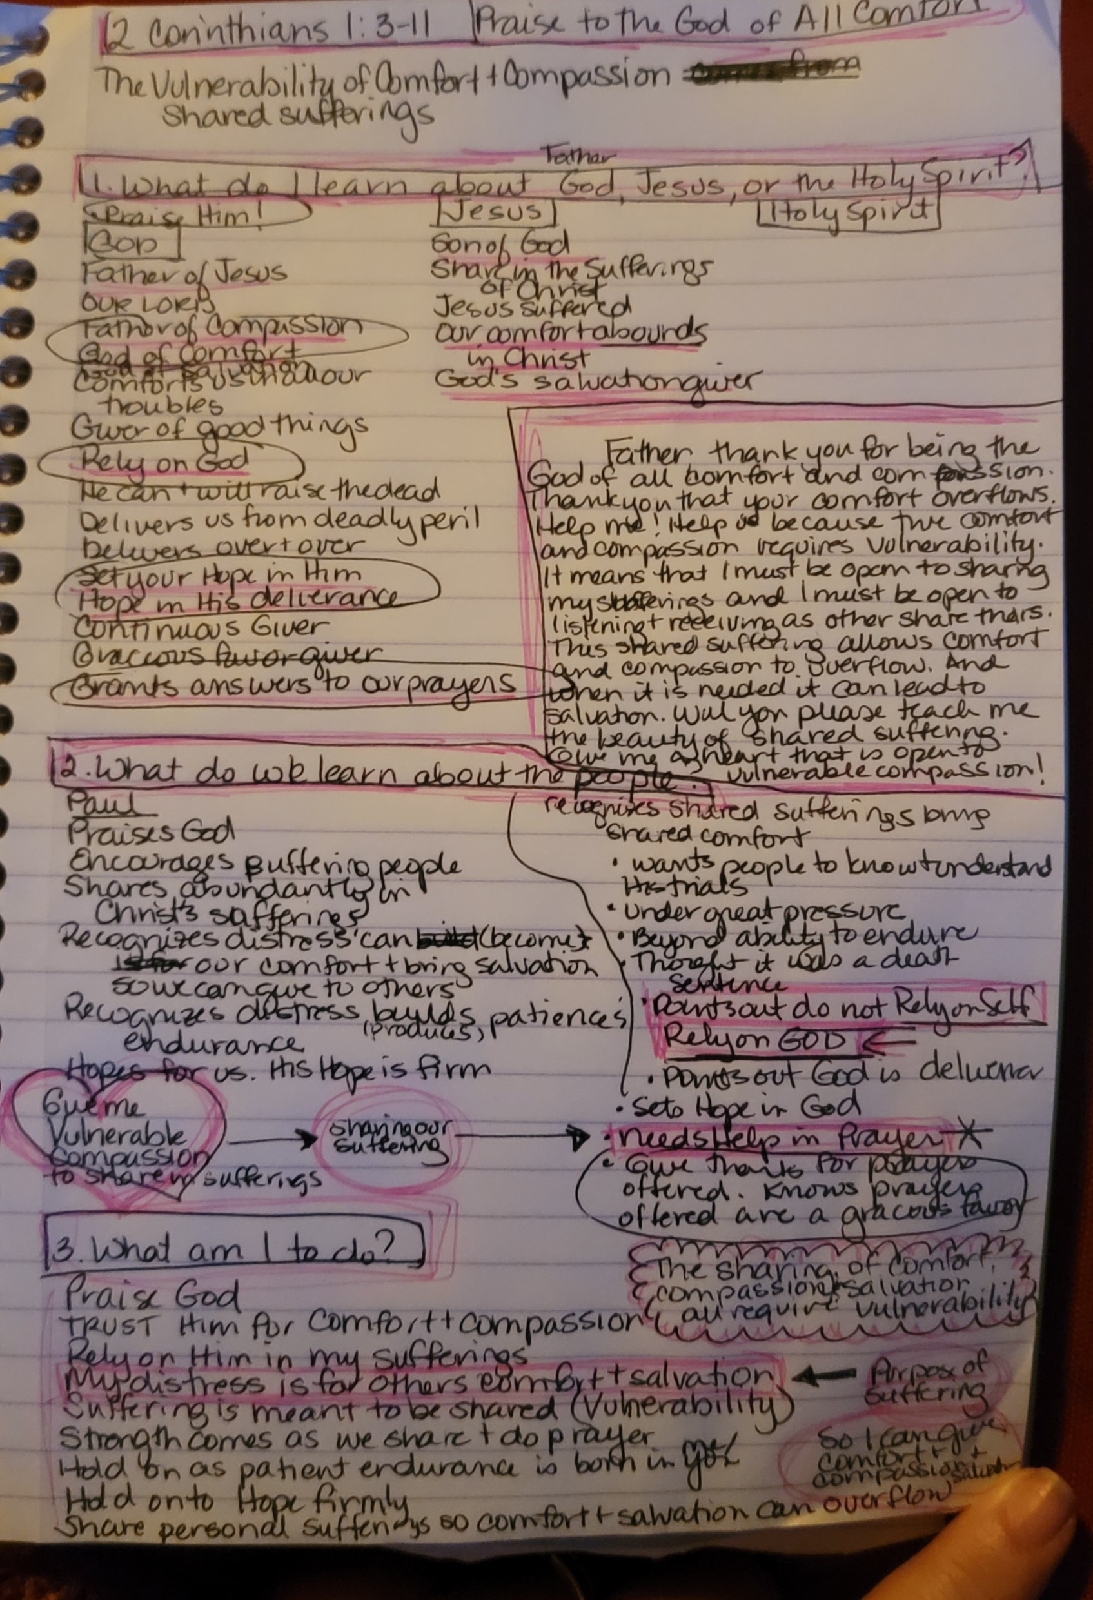 2 Corinthians 1:3-11 Praise to the God of All Comfort
The Vulnerability of Comfort + Compassion from
Shared sufferings
1. What do I learn about God, Father Jesus, or the Holy Spirit?
Praise Him!
GOD
Father of Jesus
OUR LORD
Father of Compassion
God of Comfort
Comforts us in all our
troubles
Giver of good things
Rely on God
He can + will raise the dead
Delivers us from deadly peril
Delivers over + over
Set your Hope in Him
Hope in His deliverance
Continuous Giver
Gracious favor giver
Grants answers to our prayers
Jesus
Son of God
Share in the Sufferings
of Christ
Jesus suffered
our comfort abounds
in Christ
God's salvation giver
Holy Spirit
Father thank you for being the
God of all comfort and compassion.
Thank you that your comfort overflows.
Help me! Help us because true comfort
and compassion requires vulnerability.
It means that I must be open to sharing
my sufferings and I must be open to
listening + receiving as other share thairs.
This shared suffering allows comfort
and compassion to overflow. And
when it is needed it can lead to
salvation. Will you please teach me
the beauty of shared suffering.
Give me a heart that is open to
vulnerable compassion!
2. What do we learn about the people?
Paul
Praises God
Encourages suffering people
Shares abundantly in
Christ's sufferings
Recognizes distress can (become)
our comfort + bring salvation
so we can give to others
Recognizes distress builds, (produces) patiences
endurance
Hopes for us. His Hope is firm
recognizes shared sufferings bring
shared comfort
• wants people to know + understand
His trials
• under great pressure
• Beyond ability to endure
• Thought it was a death
sentence
• Points out do not Rely on Self
Rely on GOD
• Points out God is deliverer
• Sets Hope in God
• Needs Help in Prayer
• Give thanks for prayers
offered. Knows prayers
offered are a gracous favor
Give me
Vulnerable
Compassion
to share in sufferings
sharing our
suffering
3. What am I to do?
The sharing of comfort,
compassion + salvation
all require vulnerability
Praise God
TRUST Him for comfort + compassion
Rely on Him in my sufferings
My distress is for others comfort + salvation
Suffering is meant to be shared (Vulnerability)
Strength comes as we share + do prayer
Hold on as patient endurance is born in you
Hold onto Hope firmly
Share personal sufferings so comfort + salvation can overflow
Purpose of
Suffering
So I can give
comfort +
compassion + salvation